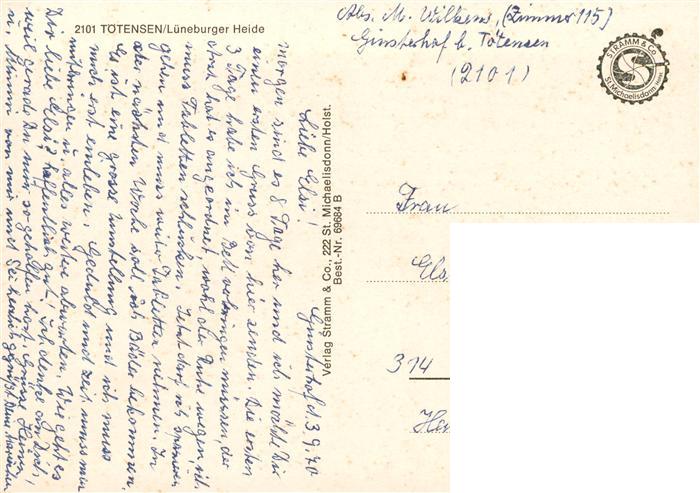 2101 TÖTENSEN/Lüneburger Heide
Abs. M. Wilkens, (Zimmer 115)
Ginsterhof b. Tötensen
(2101)
STRAMM & Co
St. Michaelisdonn
Verlag Stramm & Co., 222 St. Michaelisdonn/Holst.
Best.-Nr. 69684 B
Ginsterhof, d. 3.9.70
Liebe Elsi!
Morgen sind es 8 Tage her und ich möchte Dir
einen ersten Gruss von hier senden. Die ersten
3 Tage habe ich im Bett verbringen müssen, der
Arzt hat es angeordnet, wohl der Ruhe wegen, ich
muss Tabletten schlucken. Jetzt darf ich spazieren
gehen und muss weiter Tabletten nehmen. In
der nächsten Woche soll ich Bäder bekommen.
Es ist eine grosse Umstellung und ich muss
mich erst einleben. Geduld und Zeit muss man
mitbringen u. alles weitere abwarten. Wie geht es
Dir liebe Elsi? hoffentlich gut! Ich denke an Dich,
weil gerade Du mir so geholfen hast. Grüsse Heini
u. von mir und Sei herzlich gegrüßt Deine
Frau
Els
314